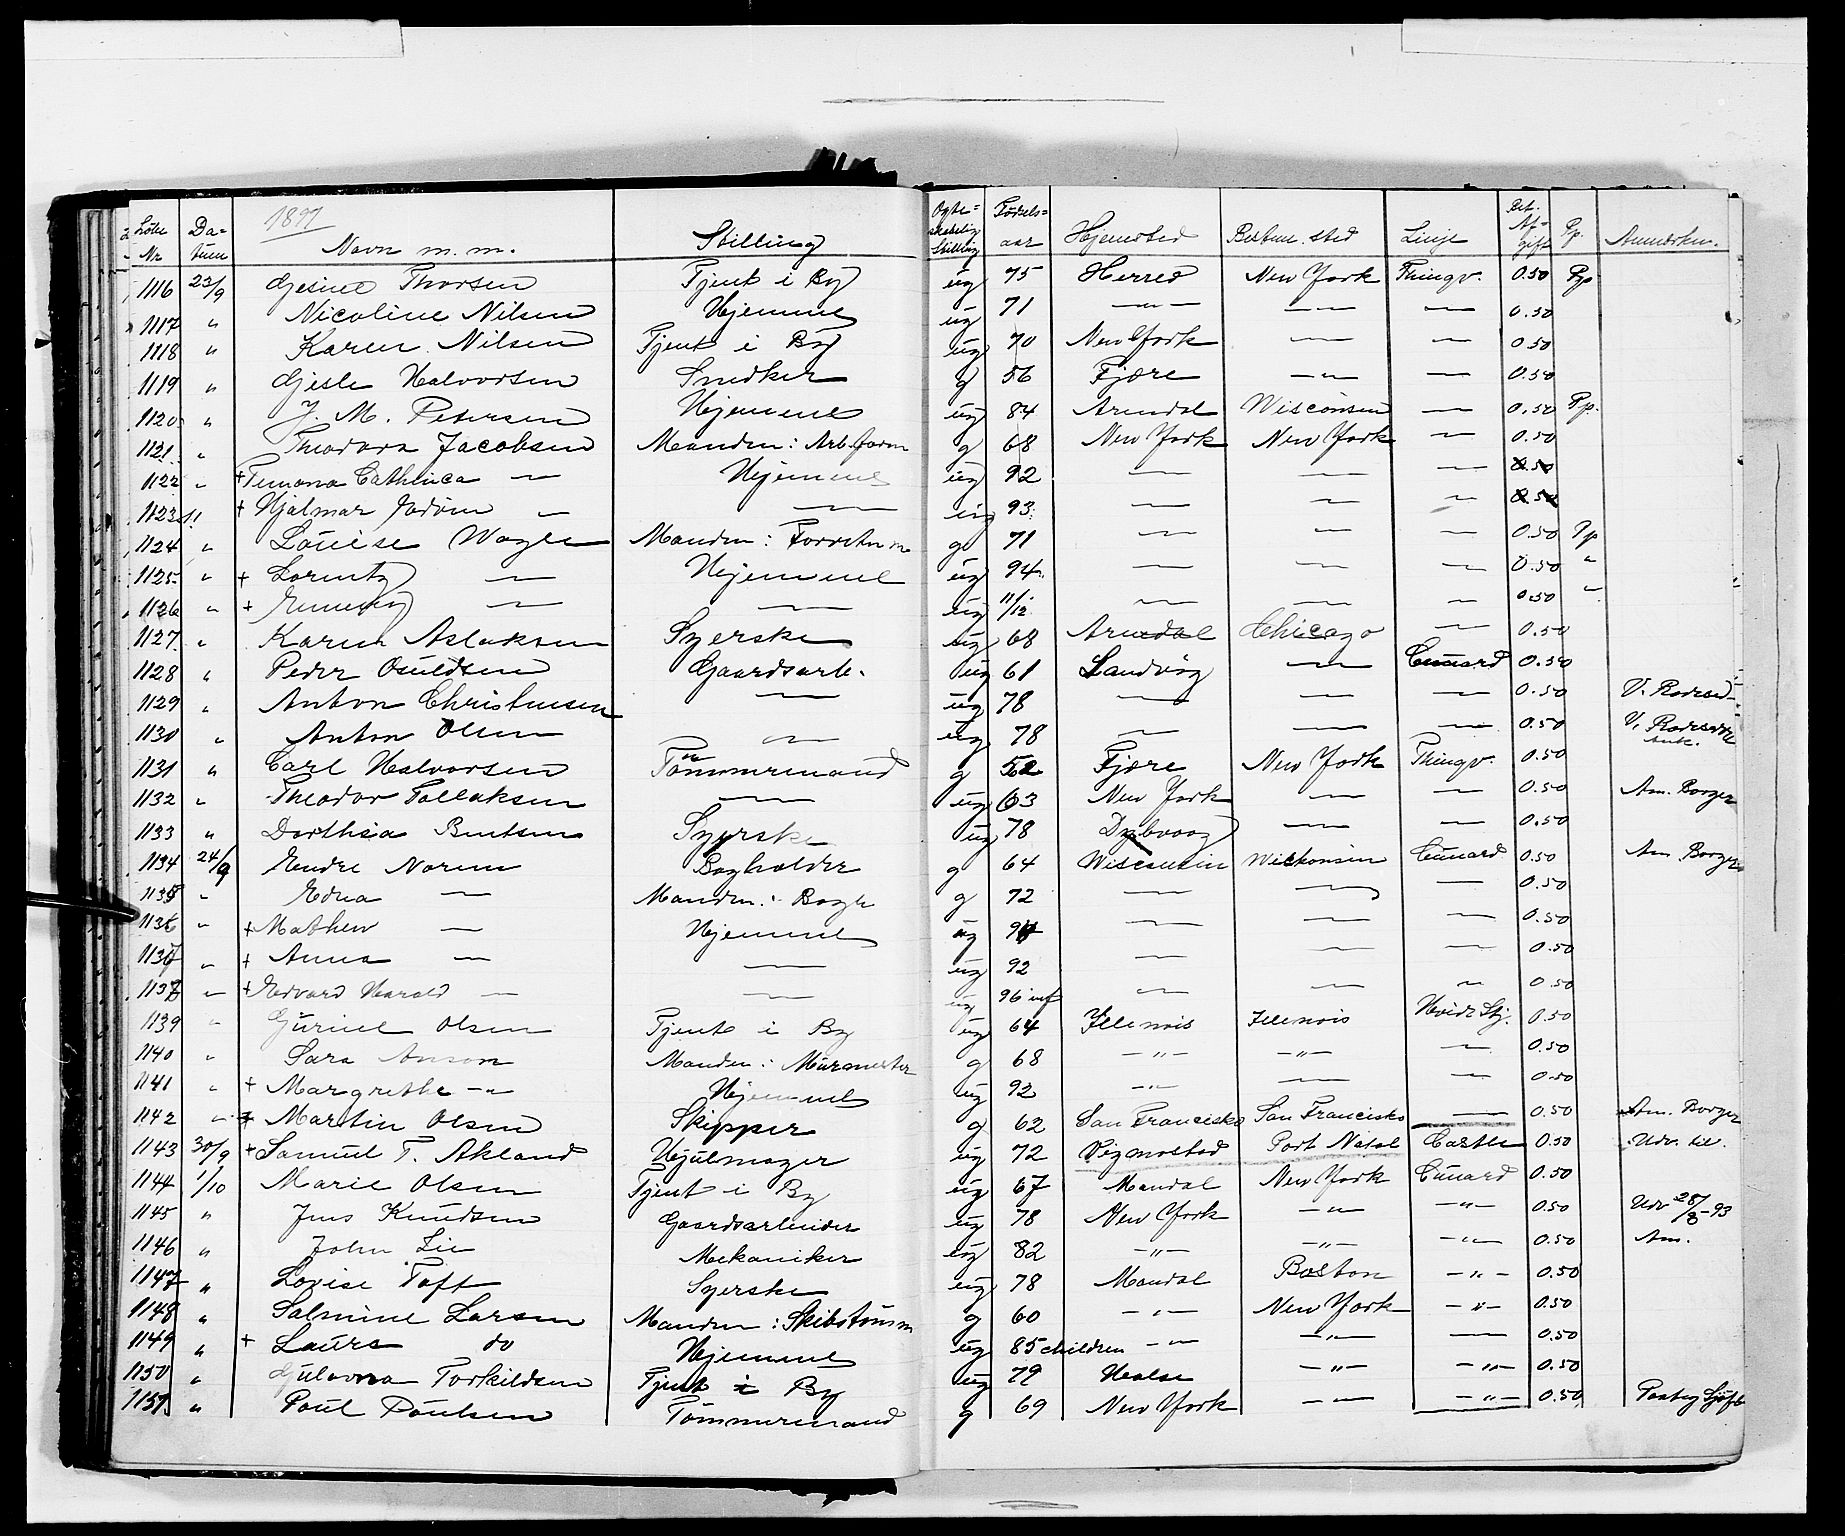 1897
Løbe Nr | Datum | Navn m.m. | Stilling | Ægteskabelig Stilling | Fødselsaar | Hjemsted | Bestem.sted | Linje | Bet. Afgift | Pp. | Anmærkn.
1116 | 23/9 | Gjesine Thorsen | Tjent i By | ug | 75 | Herred | New York | Thingv. | 0.50 | Pp
1117 | " | Nicoline Nilsen | Hjemme | ug | 71 | —"— | — | — | 0.50
1118 | " | Karen Nilsen | Tjent i By | ug | 70 | New York | — | — | 0.50
1119 | " | Gjesle Halvorsen | Snedker | g | 56 | Fjære | —"— | — | 0.50
1120 | " | J. M. Petersen | Hjemme | ug | 84 | Arendal | Wisconsen | — | 0.50 | Pp.
1121 | " | Theodora Jacobsen | Manden: Arb.form | g | 68 | New York | New York | — | 0.50
1122 | " | + Cathinca — | Hjemme | ug | 92 | — | — | — | 0.50
1123 | " | + Hjalmar — | — | ug | 93 | — | — | — | 0.50
1124 | " | Louise Wagle | Manden: | g | 71 | — | — | — | 0.50 | Pp
1125 | " | + Lorentz — | Hjemme | ug | 94 | — | — | — | 0.50 | "
1126 | " | + — | — | ug | 11/12 | — | — | — | 0.50 | "
1127 | " | Karen Aslaksen | Syerske | ug | 68 | Arendal | Chicago | — | 0.50
1128 | " | Peder Osuldsen | Gaardsarb. | ug | 61 | Landvig | — | Cunard | 0.50
1129 | " | Anton Christensen | — | ug | 78 | — | — | — | 0.50 | V.
1130 | " | Anton Olsen | — | ug | 78 | — | — | — | 0.50 | V.
1131 | " | Carl Halvorsen | Tømmermand | g | 52 | Fjære | New York | Thingv. | 0.50
1132 | " | Theodor Tellaksen | — | ug | 63 | New York | — | — | 0.50 | Am. Borger
1133 | " | Dorthea Bentsen | Syerske | ug | 78 | Dybvaag | — | — | 0.50
1134 | 24/9 | Endre Norem | Bogholder | g | 64 | Wisconsin | Wiskonsin | Cunard | 0.50 | Am Borger
1135 | " | Edna — | Manden: Bogh | g | 72 | — | — | — | 0.50
1136 | " | + Mathew — | Hjemme | ug | 94 | — | — | — | 0.50
1137 | " | + Anna — | — | ug | 92 | — | — | — | 0.50
1138 | " | + Edvard Harald — | — | ug | 96 inf | — | — | — | 0.50
1139 | " | Gurine Olsen | Tjent i By | ug | 64 | Illinois | Illinois | Hvide Stj. | 0.50
1140 | " | Sara Anson | Manden: Murmester | g | 68 | —"— | —"— | — | 0.50
1141 | " | + Margrethe —"— | Hjemme | ug | 92 | —"— | — | — | 0.50
1142 | " | + Martin Olsen | Skipper | g | 62 | San Francisko | San Francisko | — | 0.50 | Am. Borger
1143 | 30/9 | + Samuel T. Akland | Hjulmager | ug | 72 | Vigmostad | Port Natal | Castle | 0.50 | Udv. til.
1144 | 1/10 | Marie Olsen | Tjent i By | ug | 67 | Mandal | New York | Cunard | 0.50
1145 | " | Jens Knudsen | Gaardsarbeider | ug | 78 | New York | —"— | —"— | 0.50 | Udv 28/8-93
1146 | " | John Lie | Mekaniker | ug | 82 | —"— | —"— | —"— | 0.50 | Am.
1147 | " | Lovise Toft | Syerske | ug | 78 | Mandal | Boston | —"— | 0.50
1148 | " | Salmine Larsen | Manden: Skibstømm | g | 60 | —"— | New York | —"— | 0.50
1149 | " | + Laurs do | Hjemme | ug | 85 children | —"— | —"— | — | 0.50
1150 | " | Gulovna Torkildsen | Tjent i By | ug | 79 | Halse | —"— | —"— | 0.50
1151 | " | Poul Poulsen | Tømmermand | g | 69 | New York | —"— | —"— | 0.50